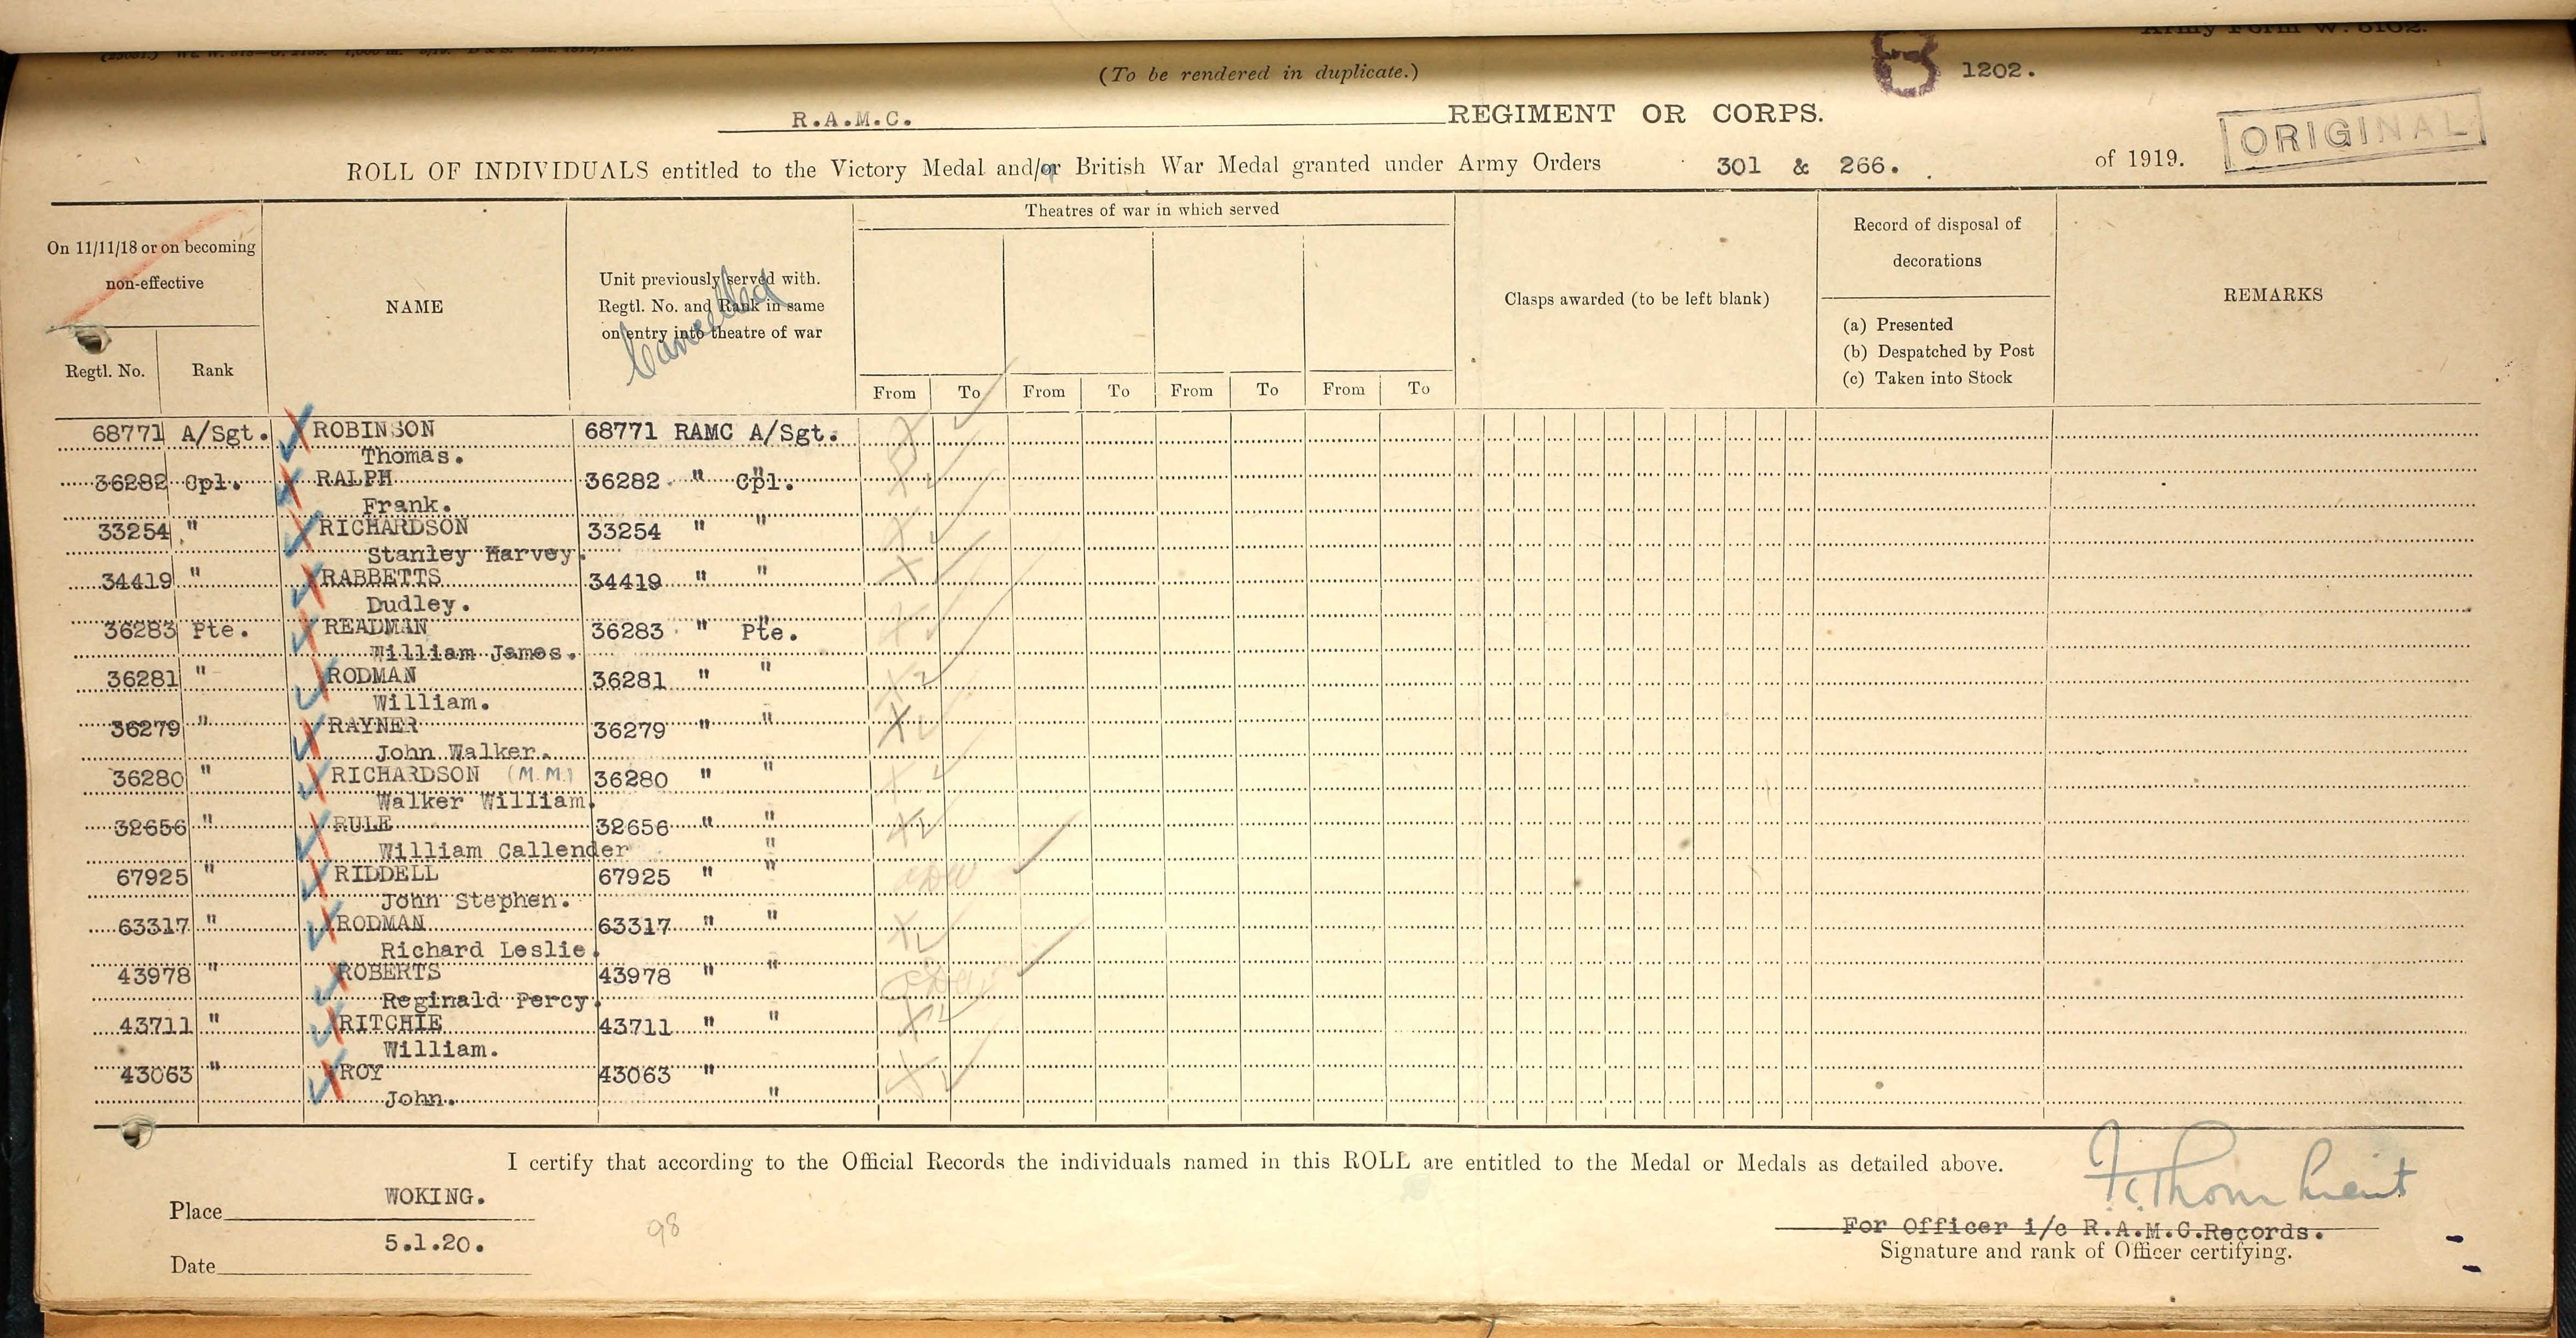 Army Form W. 5102.
(To be rendered in duplicate.)
B 1202.
R.A.M.C. REGIMENT OR CORPS.
ORIGINAL
ROLL OF INDIVIDUALS entitled to the Victory Medal and/or British War Medal granted under Army Orders 301 & 266. of 1919.
On 11/11/18 or on becoming
non-effective
Regtl. No. Rank
NAME
Unit previously served with.
Regtl. No. and Rank in same
on entry into theatre of war
Cancelled
Theatres of war in which served
From To From To From To From To
Clasps awarded (to be left blank)
Record of disposal of
decorations
(a) Presented
(b) Despatched by Post
(c) Taken into Stock
REMARKS
68771 A/Sgt. ROBINSON 68771 RAMC A/Sgt.
Thomas. "
36282 Cpl. RALPH 36282 " Cpl.
Frank.
33254 " RICHARDSON 33254 " "
Stanley Harvey.
34419 " RABBETTS 34419 " "
Dudley. "
36283 Pte. READMAN 36283 " Pte.
William James.
36281 " RODMAN 36281 " "
William.
36279 " RAYNER 36279 " "
John Walker.
36280 " RICHARDSON (M.M.) 36280 " "
Walker William.
32656 " RULE 32656 " "
William Callender "
67925 " RIDDELL 67925 " "
John Stephen.
63317 " RODMAN 63317 " "
Richard Leslie.
43978 " ROBERTS 43978 " "
Reginald Percy.
43711 " RITCHIE 43711 " "
William.
43063 " ROY 43063 "
John. "
I certify that according to the Official Records the individuals named in this ROLL are entitled to the Medal or Medals as detailed above.
Place WOKING.
Date 5.1.20.
98
Lieut
For Officer i/c R.A.M.C.Records.
Signature and rank of Officer certifying.